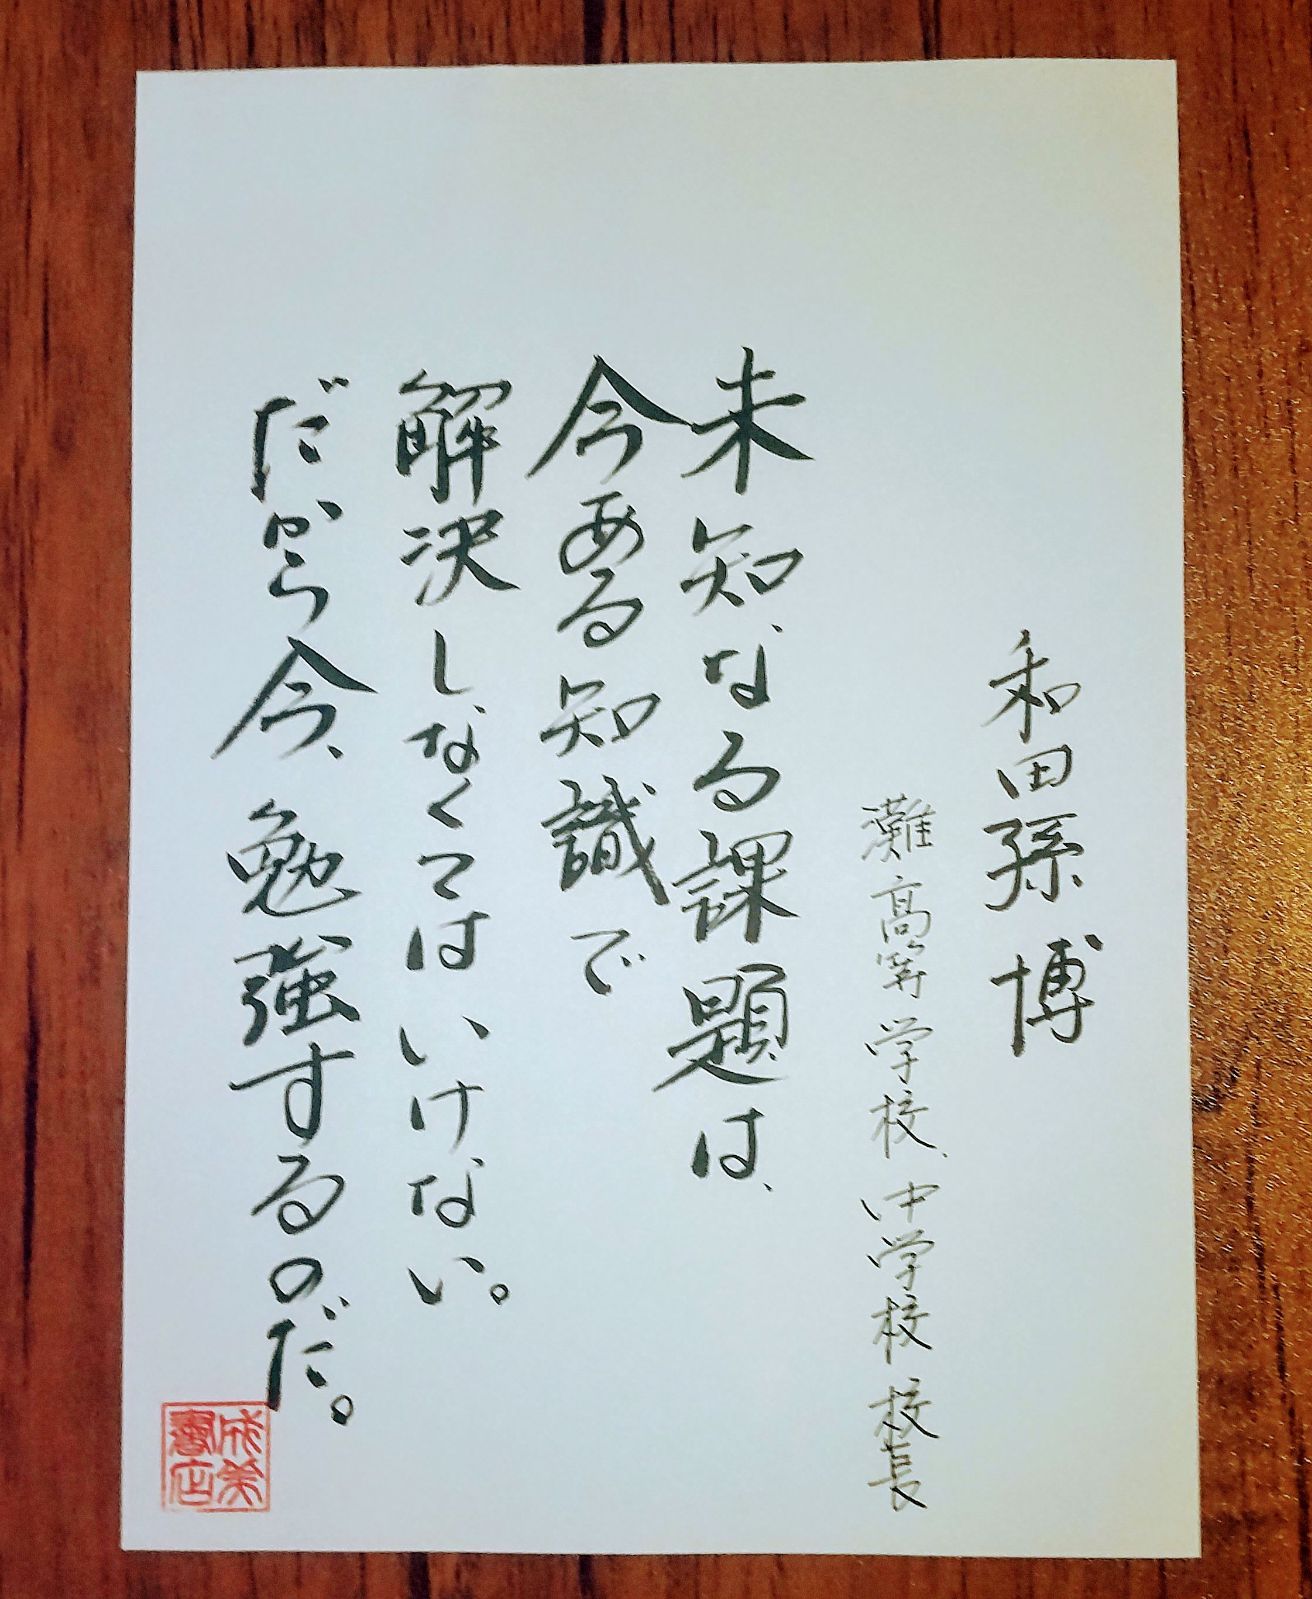 和田孫博
灘高等学校、中学校 校長
未知なる課題は、
今ある知識で
解決しなくてはいけない。
だから今、勉強するのだ。
成美
書店